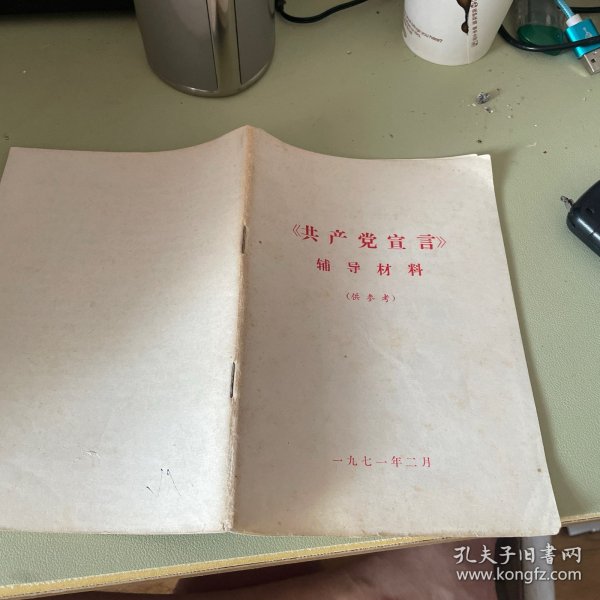 《共产党宣言》
辅导材料
（供参考）
一九七一年二月
孔夫子旧书网
www.kongfz.com